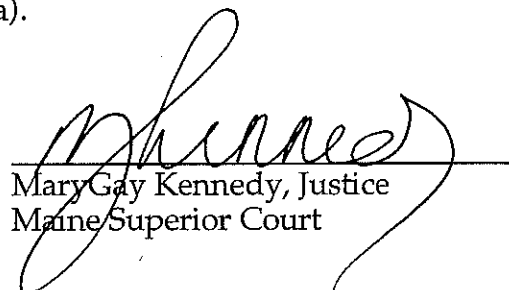 a).
MaryGay Kennedy, Justice
Maine Superior Court